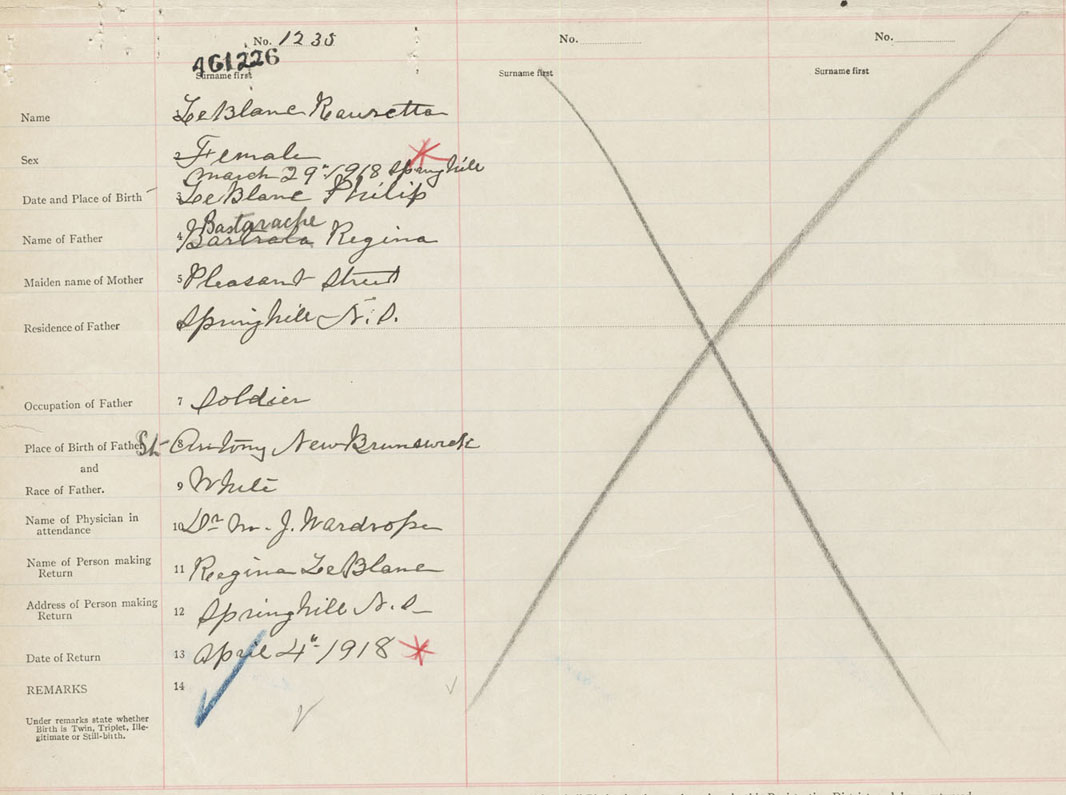 No. 1235
No.
No.
461226
Surname first
Surname first
Surname first
Name
LeBlanc Rauretta
Sex
2 Female
March 29th 1918 Springhill
Date and Place of Birth
3 LeBlanc Philip
Bastarache
Name of Father
4 Regina
Maiden name of Mother
5 Pleasant Street
Residence of Father
Springhill N.S.
Occupation of Father
7 Soldier
Place of Birth of Father
St- 8 Antony New Brunswick
and
Race of Father.
9 White
Name of Physician in
attendance
10 Dr M. J. Wardrope
Name of Person making
Return
11 Regina LeBlanc
Address of Person making
Return
12 Springhill N.S
Date of Return
13 April 4th 1918
REMARKS
14
Under remarks state whether
Birth is Twin, Triplet, Ille-
gitimate or Still-birth.